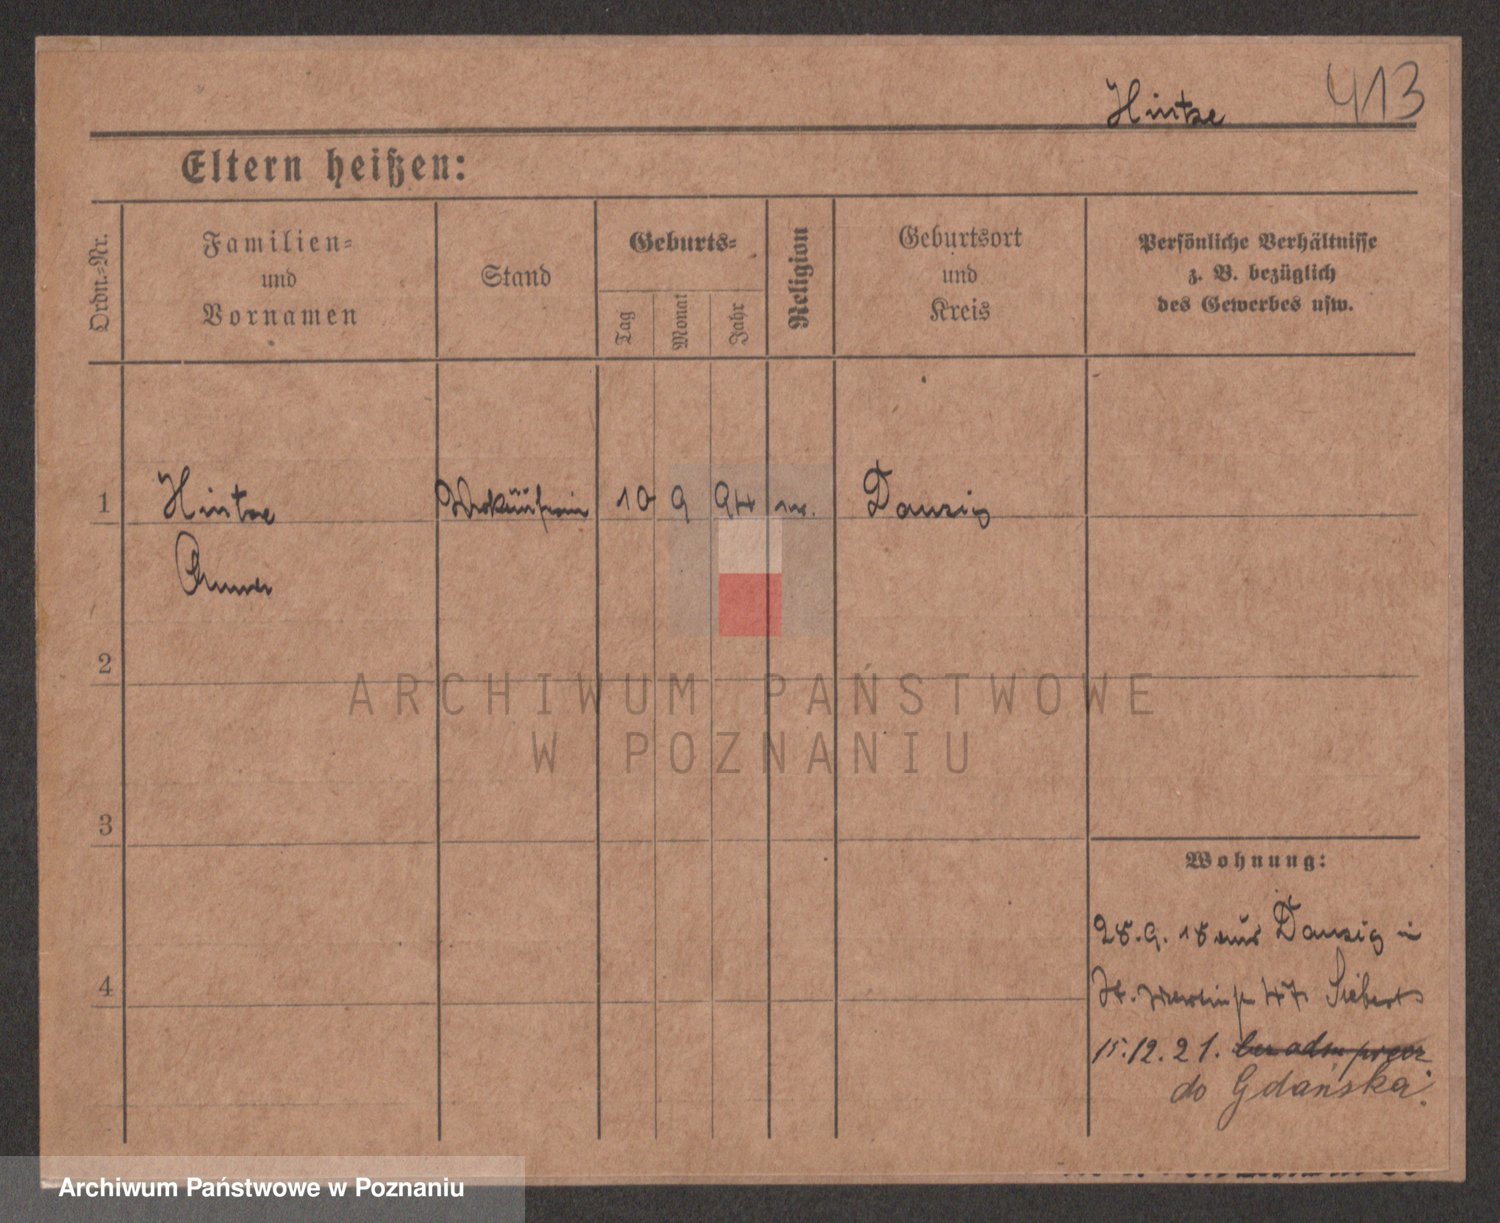 Hintze 413
Eltern heißen:
Ordn.=Nr.
Familien=
und
Vornamen
Stand
Geburts=
Tag
Monat
Jahr
Religion
Geburtsort
und
Kreis
Persönliche Verhältnisse
z. B. bezüglich
des Gewerbes usw.
1 Hintze 10 9 94 Danzig
2
3
4
Wohnung:
28.9.18 aus Danzig in
St. Martinstr 47 Siebert
15.12.21. bez adm przez
do Gdańska.
ARCHIWUM PAŃSTWOWE
W POZNANIU
Archiwum Państwowe w Poznaniu